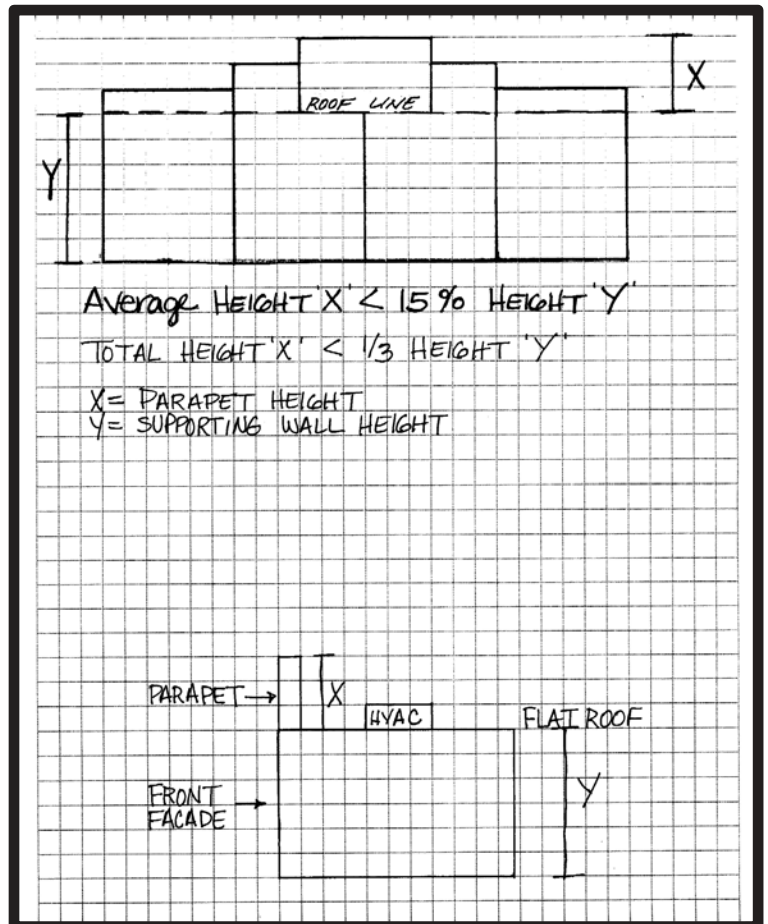 X
ROOF LINE
Y
Average HEIGHT 'X' < 15% HEIGHT 'Y'
TOTAL HEIGHT 'X' < 1/3 HEIGHT 'Y'
X= PARAPET HEIGHT
Y= SUPPORTING WALL HEIGHT
PARAPET→
X
HVAC
FLAT ROOF
FRONT →
FACADE
Y